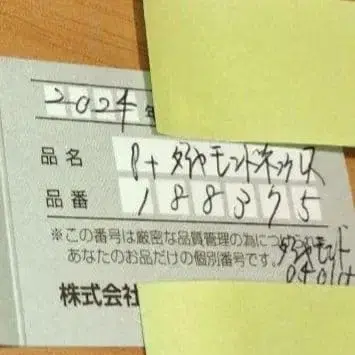 2024年
品名 Pt ダイヤモンドネックレス
品番 188375
※この番号は厳密な品質管理の為につけられ
あなたのお品だけの個別番号です。
ダイヤモンド
株式会社